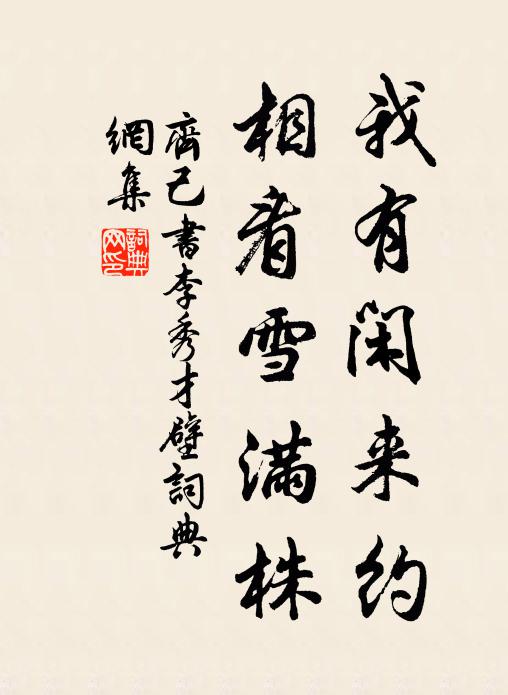 我有闲来约
相看雪满株
齊己書李秀才壁詞典
網集
詞典網印